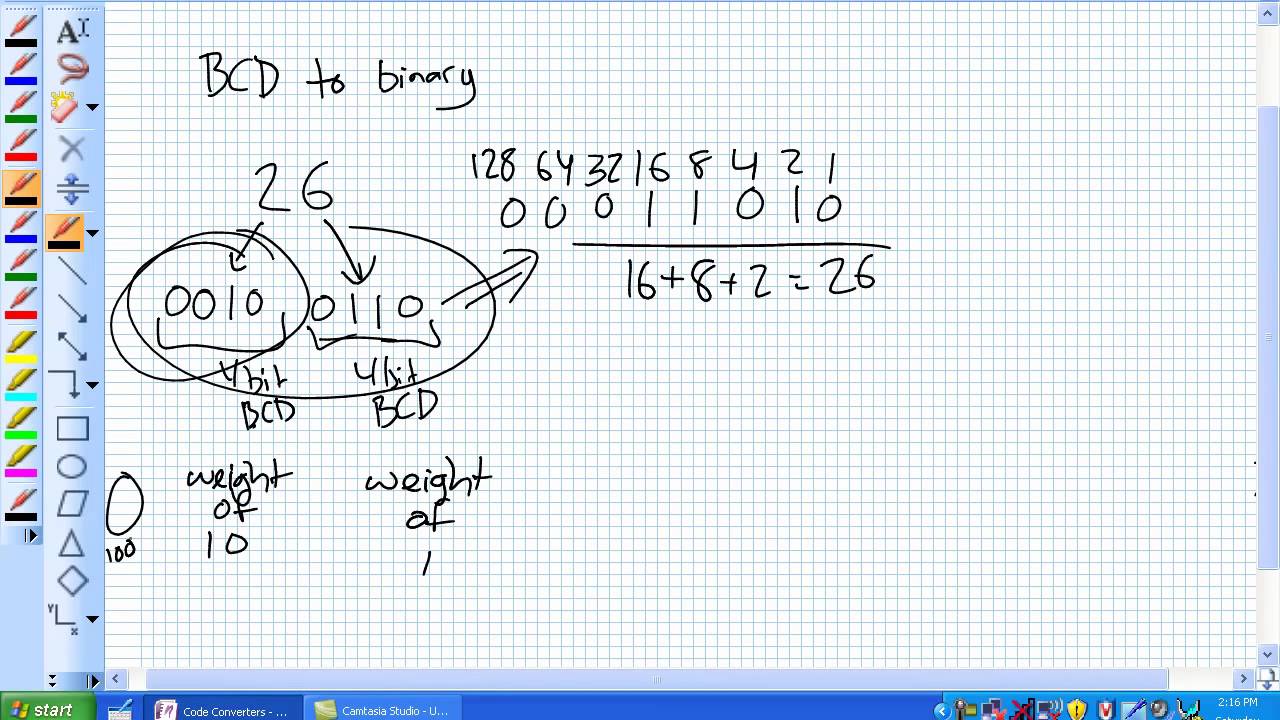 BCD to binary
26
128 64 32 16 8 4 2 1
0 0 0 1 1 0 1 0
16+8+2=26
0010 0110
4 bit 4 bit
BCD BCD
weight weight
of of
10 1
0
100
start
Code Converters - ...
Camtasia Studio - U...
2:16 PM